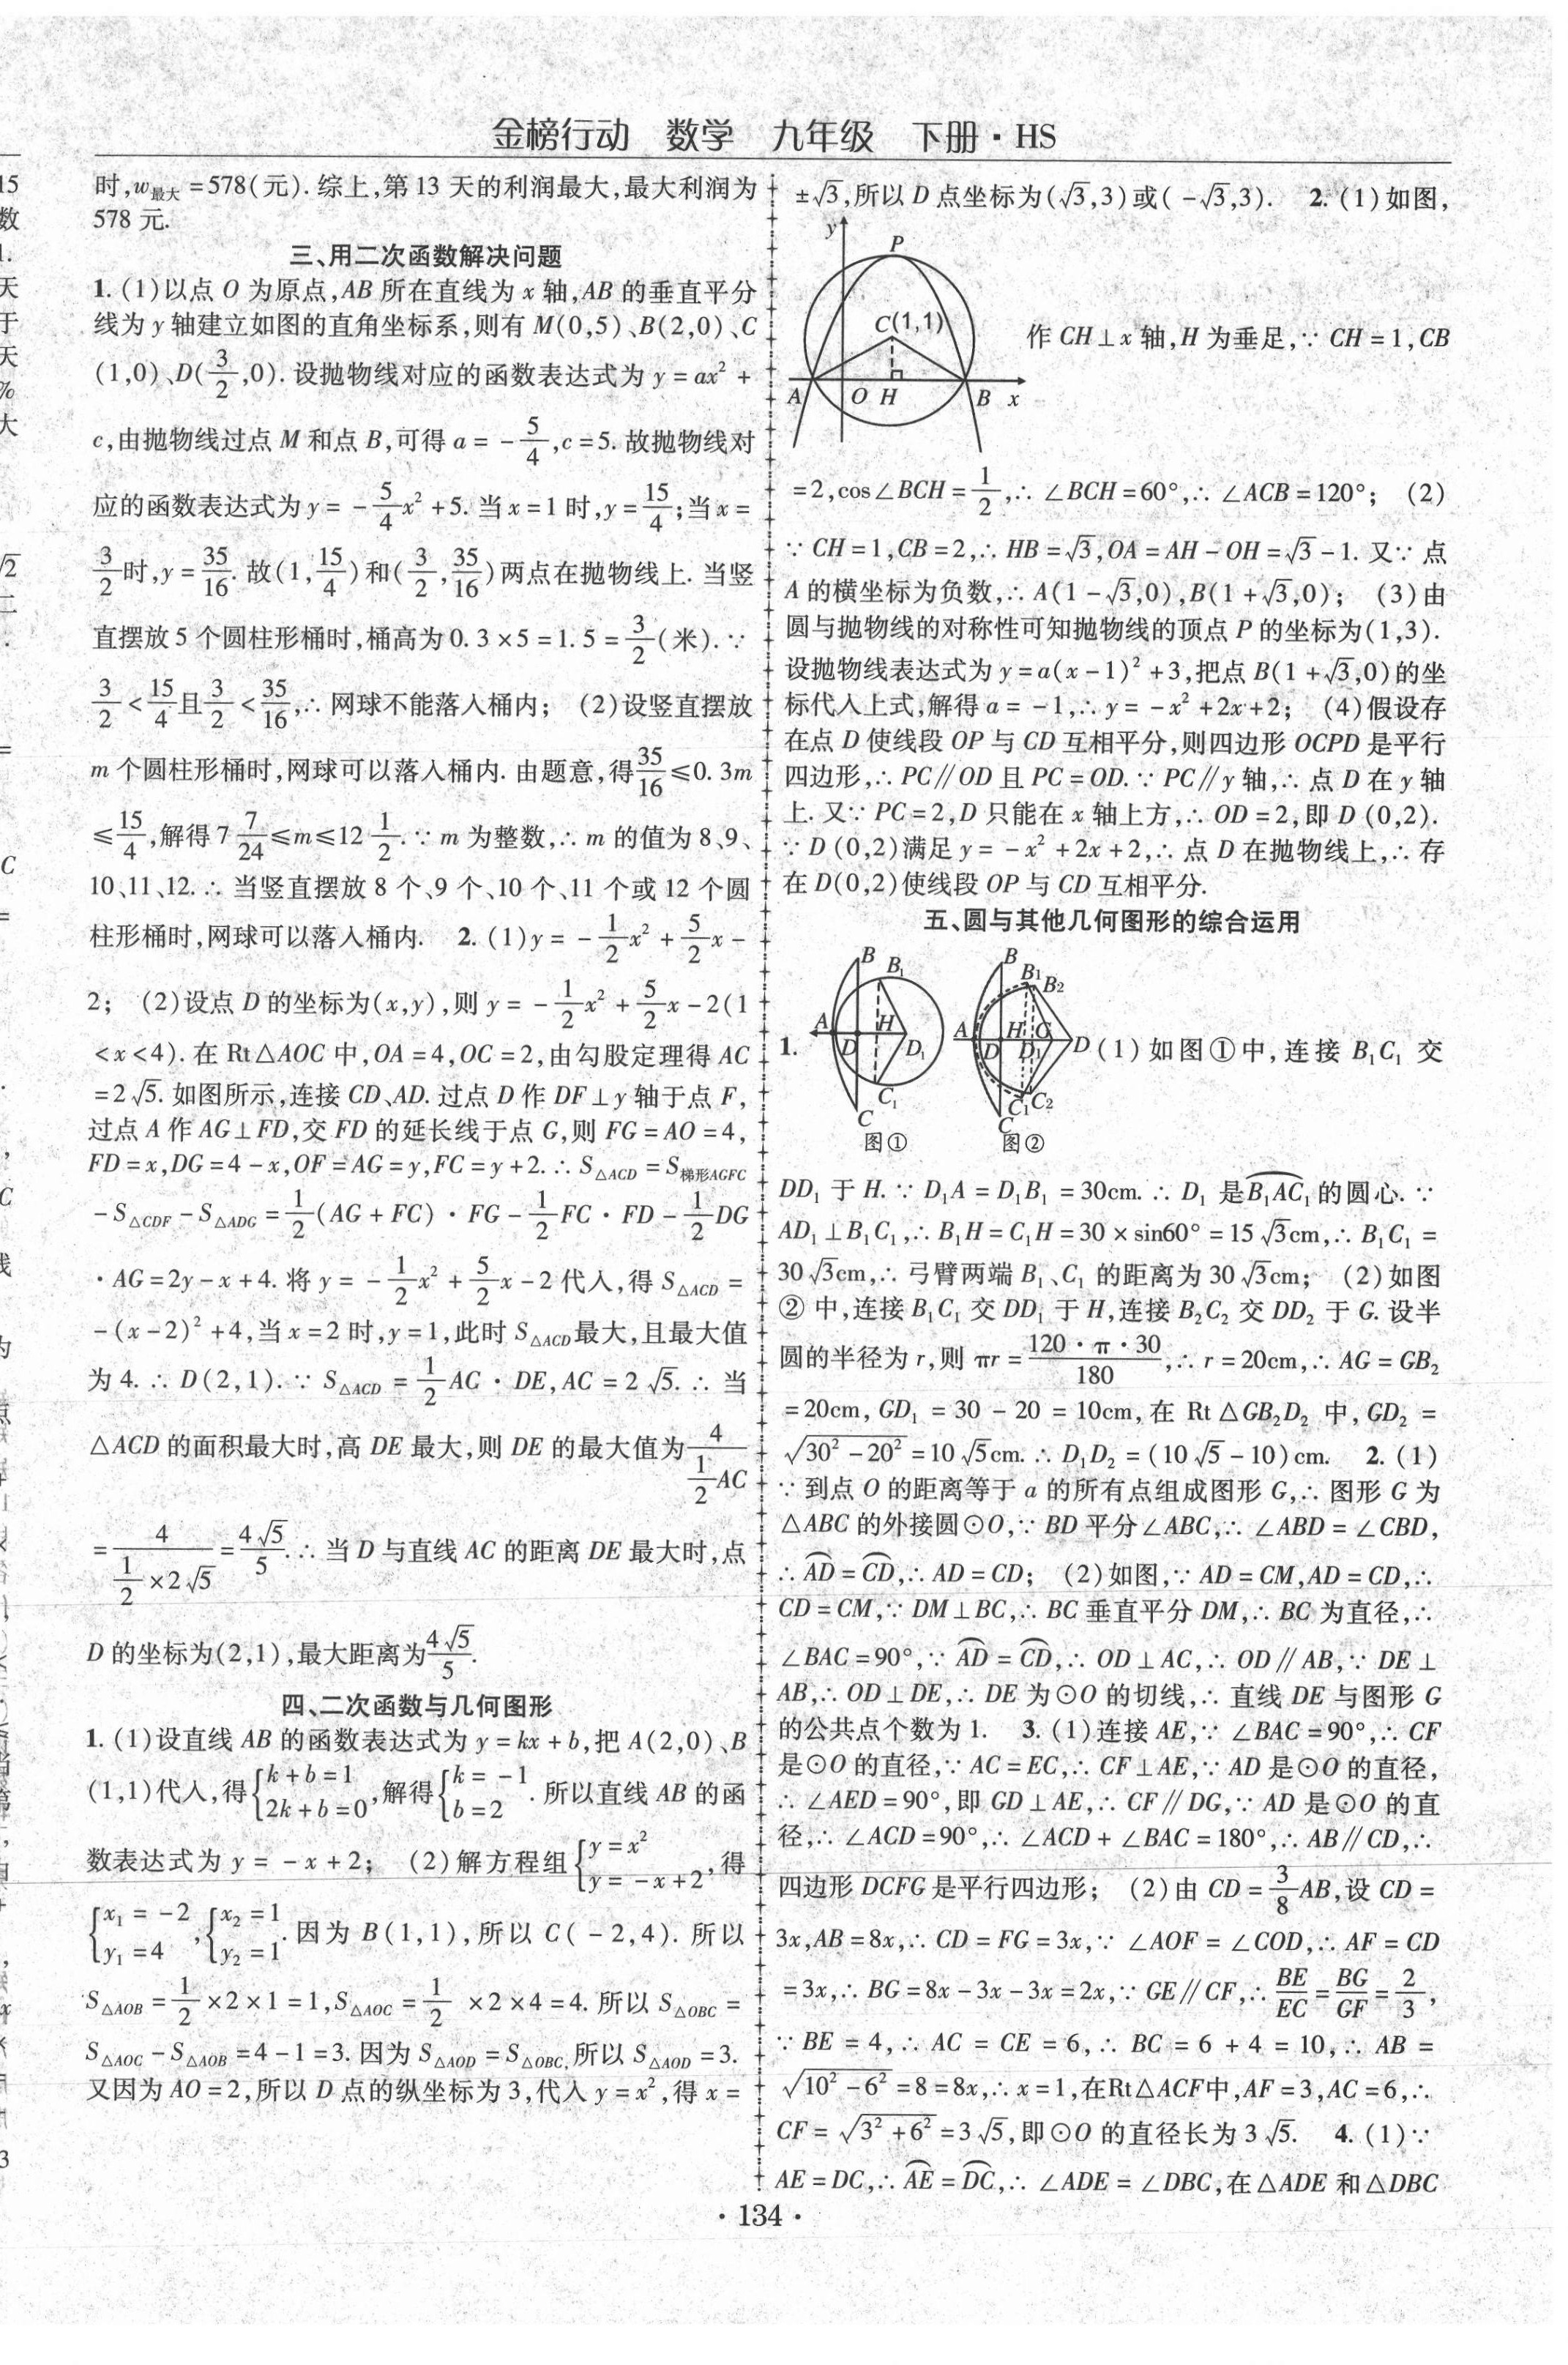 金榜行动 数学 九年级 下册·HS
时,w最大=578(元).综上,第13天的利润最大,最大利润为
578元.
三、用二次函数解决问题
1.(1)以点O为原点,AB所在直线为x轴,AB的垂直平分
线为y轴建立如图的直角坐标系,则有M(0,5)、B(2,0)、C
(1,0)、D(3/2,0).设抛物线对应的函数表达式为y=ax²+
c,由抛物线过点M和点B,可得a=-5/4,c=5.故抛物线对
应的函数表达式为y=-5/4x²+5.当x=1时,y=15/4;当x=
3/2时,y=35/16.故(1,15/4)和(3/2,35/16)两点在抛物线上.当竖
直摆放5个圆柱形桶时,桶高为0.3×5=1.5=3/2(米).∵
3/2<15/4且3/2<35/16,∴网球不能落入桶内; (2)设竖直摆放
m个圆柱形桶时,网球可以落入桶内.由题意,得35/16≤0.3m
≤15/4,解得7 7/24≤m≤12 1/2.∵m为整数,∴m的值为8、9、
10、11、12.∴当竖直摆放8个、9个、10个、11个或12个圆
柱形桶时,网球可以落入桶内. 2.(1)y=-1/2x²+5/2x-
2; (2)设点D的坐标为(x,y),则y=-1/2x²+5/2x-2(1
<x<4).在Rt△AOC中,OA=4,OC=2,由勾股定理得AC
=2√5.如图所示,连接CD、AD.过点D作DF⊥y轴于点F,
过点A作AG⊥FD,交FD的延长线于点G,则FG=AO=4,
FD=x,DG=4-x,OF=AG=y,FC=y+2.∴S△ACD=S梯形AGFC
-S△CDF-S△ADG=1/2(AG+FC)·FG-1/2FC·FD-1/2DG
·AG=2y-x+4.将y=-1/2x²+5/2x-2代入,得S△ACD=
-(x-2)²+4,当x=2时,y=1,此时S△ACD最大,且最大值
为4.∴D(2,1).∵S△ACD=1/2AC·DE,AC=2√5.∴当
△ACD的面积最大时,高DE最大,则DE的最大值为4/(1/2AC)
=4/(1/2×2√5)=4√5/5.∴当D与直线AC的距离DE最大时,点
D的坐标为(2,1),最大距离为4√5/5.
四、二次函数与几何图形
1.(1)设直线AB的函数表达式为y=kx+b,把A(2,0)、B
(1,1)代入,得{k+b=1 2k+b=0,解得{k=-1 b=2.所以直线AB的函
数表达式为y=-x+2; (2)解方程组{y=x² y=-x+2,得
{x₁=-2 y₁=4,{x₂=1 y₂=1.因为B(1,1),所以C(-2,4).所以
S△AOB=1/2×2×1=1,S△AOC=1/2×2×4=4.所以S△OBC=
S△AOC-S△AOB=4-1=3.因为S△AOD=S△OBC,所以S△AOD=3.
又因为AO=2,所以D点的纵坐标为3,代入y=x²,得x=
±√3,所以D点坐标为(√3,3)或(-√3,3). 2.(1)如图,
y P
C(1,1)
A O H B x
作CH⊥x轴,H为垂足,∵CH=1,CB
=2,cos∠BCH=1/2,∴∠BCH=60°,∴∠ACB=120°; (2)
∵CH=1,CB=2,∴HB=√3,OA=AH-OH=√3-1.又∵点
A的横坐标为负数,∴A(1-√3,0),B(1+√3,0); (3)由
圆与抛物线的对称性可知抛物线的顶点P的坐标为(1,3).
设抛物线表达式为y=a(x-1)²+3,把点B(1+√3,0)的坐
标代入上式,解得a=-1,∴y=-x²+2x+2; (4)假设存
在点D使线段OP与CD互相平分,则四边形OCPD是平行
四边形,∴PC∥OD且PC=OD.∵PC∥y轴,∴点D在y轴
上.又∵PC=2,D只能在x轴上方,∴OD=2,即D(0,2).
∵D(0,2)满足y=-x²+2x+2,∴点D在抛物线上,∴存
在D(0,2)使线段OP与CD互相平分.
五、圆与其他几何图形的综合运用
B B₁ A D H D₁ C₁ C
图①
B B₁ B₂ A D H G D₁ D C₁ C₂ C
图②
1. (1)如图①中,连接B₁C₁交
DD₁于H.∵D₁A=D₁B₁=30cm.∴D₁是B₁AC₁的圆心.∵
AD₁⊥B₁C₁,∴B₁H=C₁H=30×sin60°=15√3cm,∴B₁C₁=
30√3cm,∴弓臂两端B₁、C₁的距离为30√3cm; (2)如图
②中,连接B₁C₁交DD₁于H,连接B₂C₂交DD₂于G.设半
圆的半径为r,则πr=120·π·30/180,∴r=20cm,∴AG=GB₂
=20cm,GD₁=30-20=10cm,在Rt△GB₂D₂中,GD₂=
√(30²-20²)=10√5cm.∴D₁D₂=(10√5-10)cm. 2.(1)
∵到点O的距离等于a的所有点组成图形G,∴图形G为
△ABC的外接圆⊙O,∵BD平分∠ABC,∴∠ABD=∠CBD,
∴AD=CD,∴AD=CD; (2)如图,∵AD=CM,AD=CD,∴
CD=CM,∵DM⊥BC,∴BC垂直平分DM,∴BC为直径,∴
∠BAC=90°,∵AD=CD,∴OD⊥AC,∴OD∥AB,∵DE⊥
AB,∴OD⊥DE,∴DE为⊙O的切线,∴直线DE与图形G
的公共点个数为1. 3.(1)连接AE,∵∠BAC=90°,∴CF
是⊙O的直径,∵AC=EC,∴CF⊥AE,∵AD是⊙O的直径,
∴∠AED=90°,即GD⊥AE,∴CF∥DG,∵AD是⊙O的直
径,∴∠ACD=90°,∴∠ACD+∠BAC=180°,∴AB∥CD,∴
四边形DCFG是平行四边形; (2)由CD=3/8AB,设CD=
3x,AB=8x,∴CD=FG=3x,∵∠AOF=∠COD,∴AF=CD
=3x,∴BG=8x-3x-3x=2x,∵GE∥CF,∴BE/EC=BG/GF=2/3,
∵BE=4,∴AC=CE=6,∴BC=6+4=10,∴AB=
√(10²-6²)=8=8x,∴x=1,在Rt△ACF中,AF=3,AC=6,∴
CF=√(3²+6²)=3√5,即⊙O的直径长为3√5. 4.(1)∵
AE=DC,∴AE=DC,∴∠ADE=∠DBC,在△ADE和△DBC
·134·